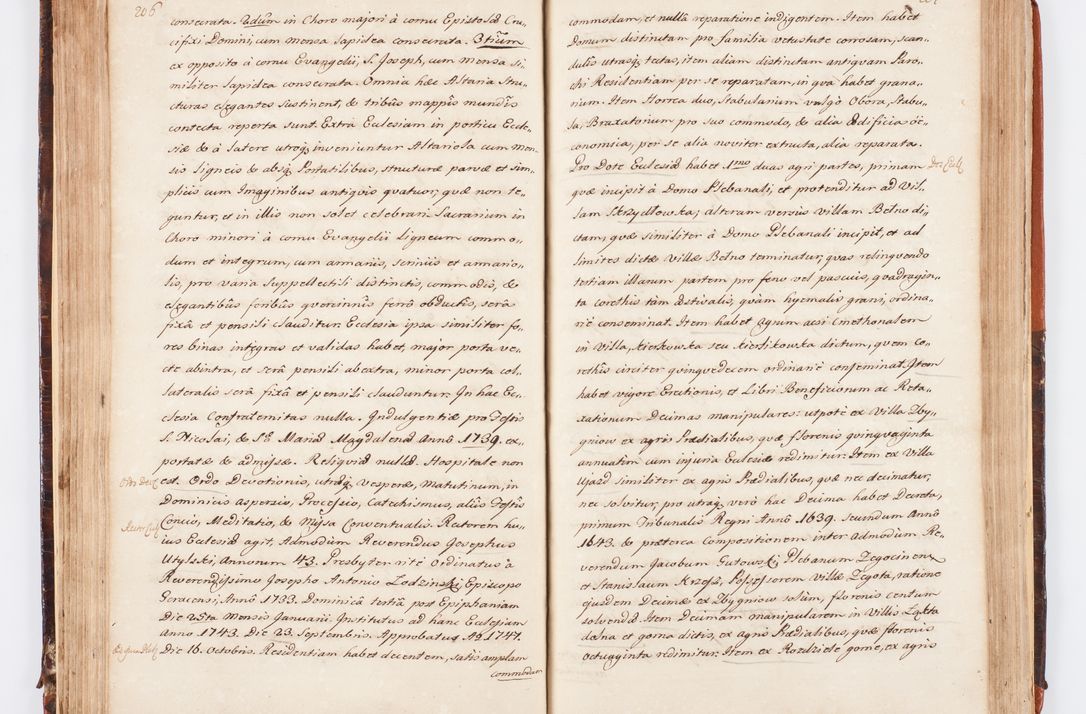 206
consecrata. 2dum in Choro majori à cornu Epistolæ Cru-
cifixi Domini, cum mensa lapidea consecrata. 3tium
ex opposito à cornu Evangelii, S. Joseph, cum mensa si-
militer lapidea consecrata. Omnia hæc Altaria stru-
cturas elegantes sustinent, & tribus mappis mundis
contecta reperta sunt. Extra Ecclesiam in porticu Eccle-
siæ & à latere utroq; inveniuntur Altariola cum men-
sis ligneis & absq; Portatilibus, structuræ parvæ et sim-
plicis cum Imaginibus antiquis quatuor, quæ non te-
guntur, et in illis non solet celebrari. Sacrarium in
Choro minori à cornu Evangelii ligneum commo-
dum et integrum, cum armariis, scriniis et armario-
lis, pro varia suppellectili distinctis, commodis, &
elegantibus foribus quercinnis ferro obductis, sera
fixa et pensili clauditur. Ecclesia ipsa similiter fo-
res binas integras et validas habet, major porta ve-
cte abintra, et sera pensili abextra, minor porta col-
lateralis sera fixa et pensili clauduntur. In hac Ec-
clesia Confraternitas nulla. Indulgentiæ pro Festis
S. Nicolai, & Stæ Mariæ Magdalenæ Anno 1739. ex-
portatæ & admissæ. Reliquiæ nullæ. Hospitale non
est. Ordo Devotionis, utræq; Vesperæ, Matutinum, in
Dominicis aspersio, Processio, Catechismus, aliis Festis
Concio, Meditatio, & Missa Conventualis. Rectorem hu-
ius Ecclesiæ agit, Admodum Reverendus Josephus
Utylski, Annorum 43. Presbyter rite Ordinatus à
Reverendissimo Josepho Antonio Łodzinski Episcopo
Ceracensi, Anno 1733. Dominica tertia post Epiphaniam
Die 25ta Mensis Januarii. Institutus ad hanc Ecclesiam
Anno 1743. Die 23. Septembris. Approbatus Ao 1747.
Die 16. Octobris. Residentiam habet decentem, satis amplam
commodam
commodam, et nulla reparatione indigentem. Item habet
Domum distinctam pro familia vetustate corrosam, scan-
dulis utrasq; tectas, item aliam distinctam antiquam Paro-
chi Residentiam per se reparatam, in qua habet grana-
rium. Item Horrea duo, Stabularium vulgo Obora, Stabu-
la, Braxatorium pro suo commodo, & alia ædificia oe-
conomica, per se alia noviter extructa, alia reparata.
Pro Dote Ecclesiæ habet 1mo duas agri partes, primam
quæ incipit à Domo Plebanali, et protenditur ad Vil-
lam Skrzydlowska; alteram versus villam Bełno di-
ctam, quæ similiter à Domo Plebanali incipit, et ad
limites dictæ Villæ Bełno terminatur, quas relinquendo
tertiam illarum partem pro feno vel pascuis, quadragin-
ta corethis tam æstivalis, quàm hyemalis grani, ordina-
riè conseminat. Item habet agrum acsi Cmethonalem
in Villa, Kierkowska seu Kierlikowska dictum, quem co-
rethis circiter quinquedecem ordinariè conseminat. Item
habet vigore Erectionis, et Libri Beneficiorum ac Reta-
xationum Decimas manipulares: utpotè ex Villa Zby-
gniow ex agris Prædialibus, quæ florenis quinquaginta
annuatim cum injuria Ecclesiæ redimitur. Item ex Villa
Ujazd similiter ex agris Prædialibus, quæ nec decimatur,
nec solvitur, pro utraq; verò hac Decima habet Decreta,
primum Tribunalis Regni Anno 1639. secundum Anno
1643. & præterea Compositionem inter admodum Re-
verendum Jacobum Gutowski Plebanum Zegocinen:
et Stanislaum Krzesz, Possessorem Villæ Zegota, ratione
ejusdem Decimæ ex Zbygniow solum, florenis centum
solvendæ. Item Decimam manipularem in Villis Łąkta
dolna et gorna dictis, ex agris Prædialibus, quæ florenis
octuaginta redimitur. Item ex Rozdziele gorne, ex agris